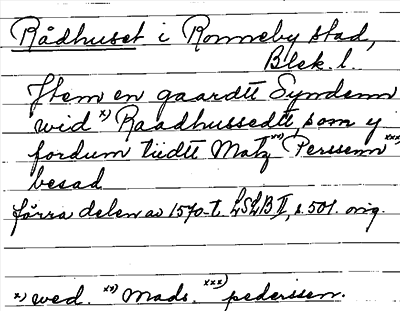 Rådhuset i Ronneby stad,
Blek. l.
Jtem en gaardtt Syndenn
wid x) Raadhussedtt, som y
fordum tiidtt Matz xx) Perssenn xxx)
besad
förra delen av 1570-t. LSLB II, s. 501. orig.
x) wed. xx) Mads. xxx) pederssen.